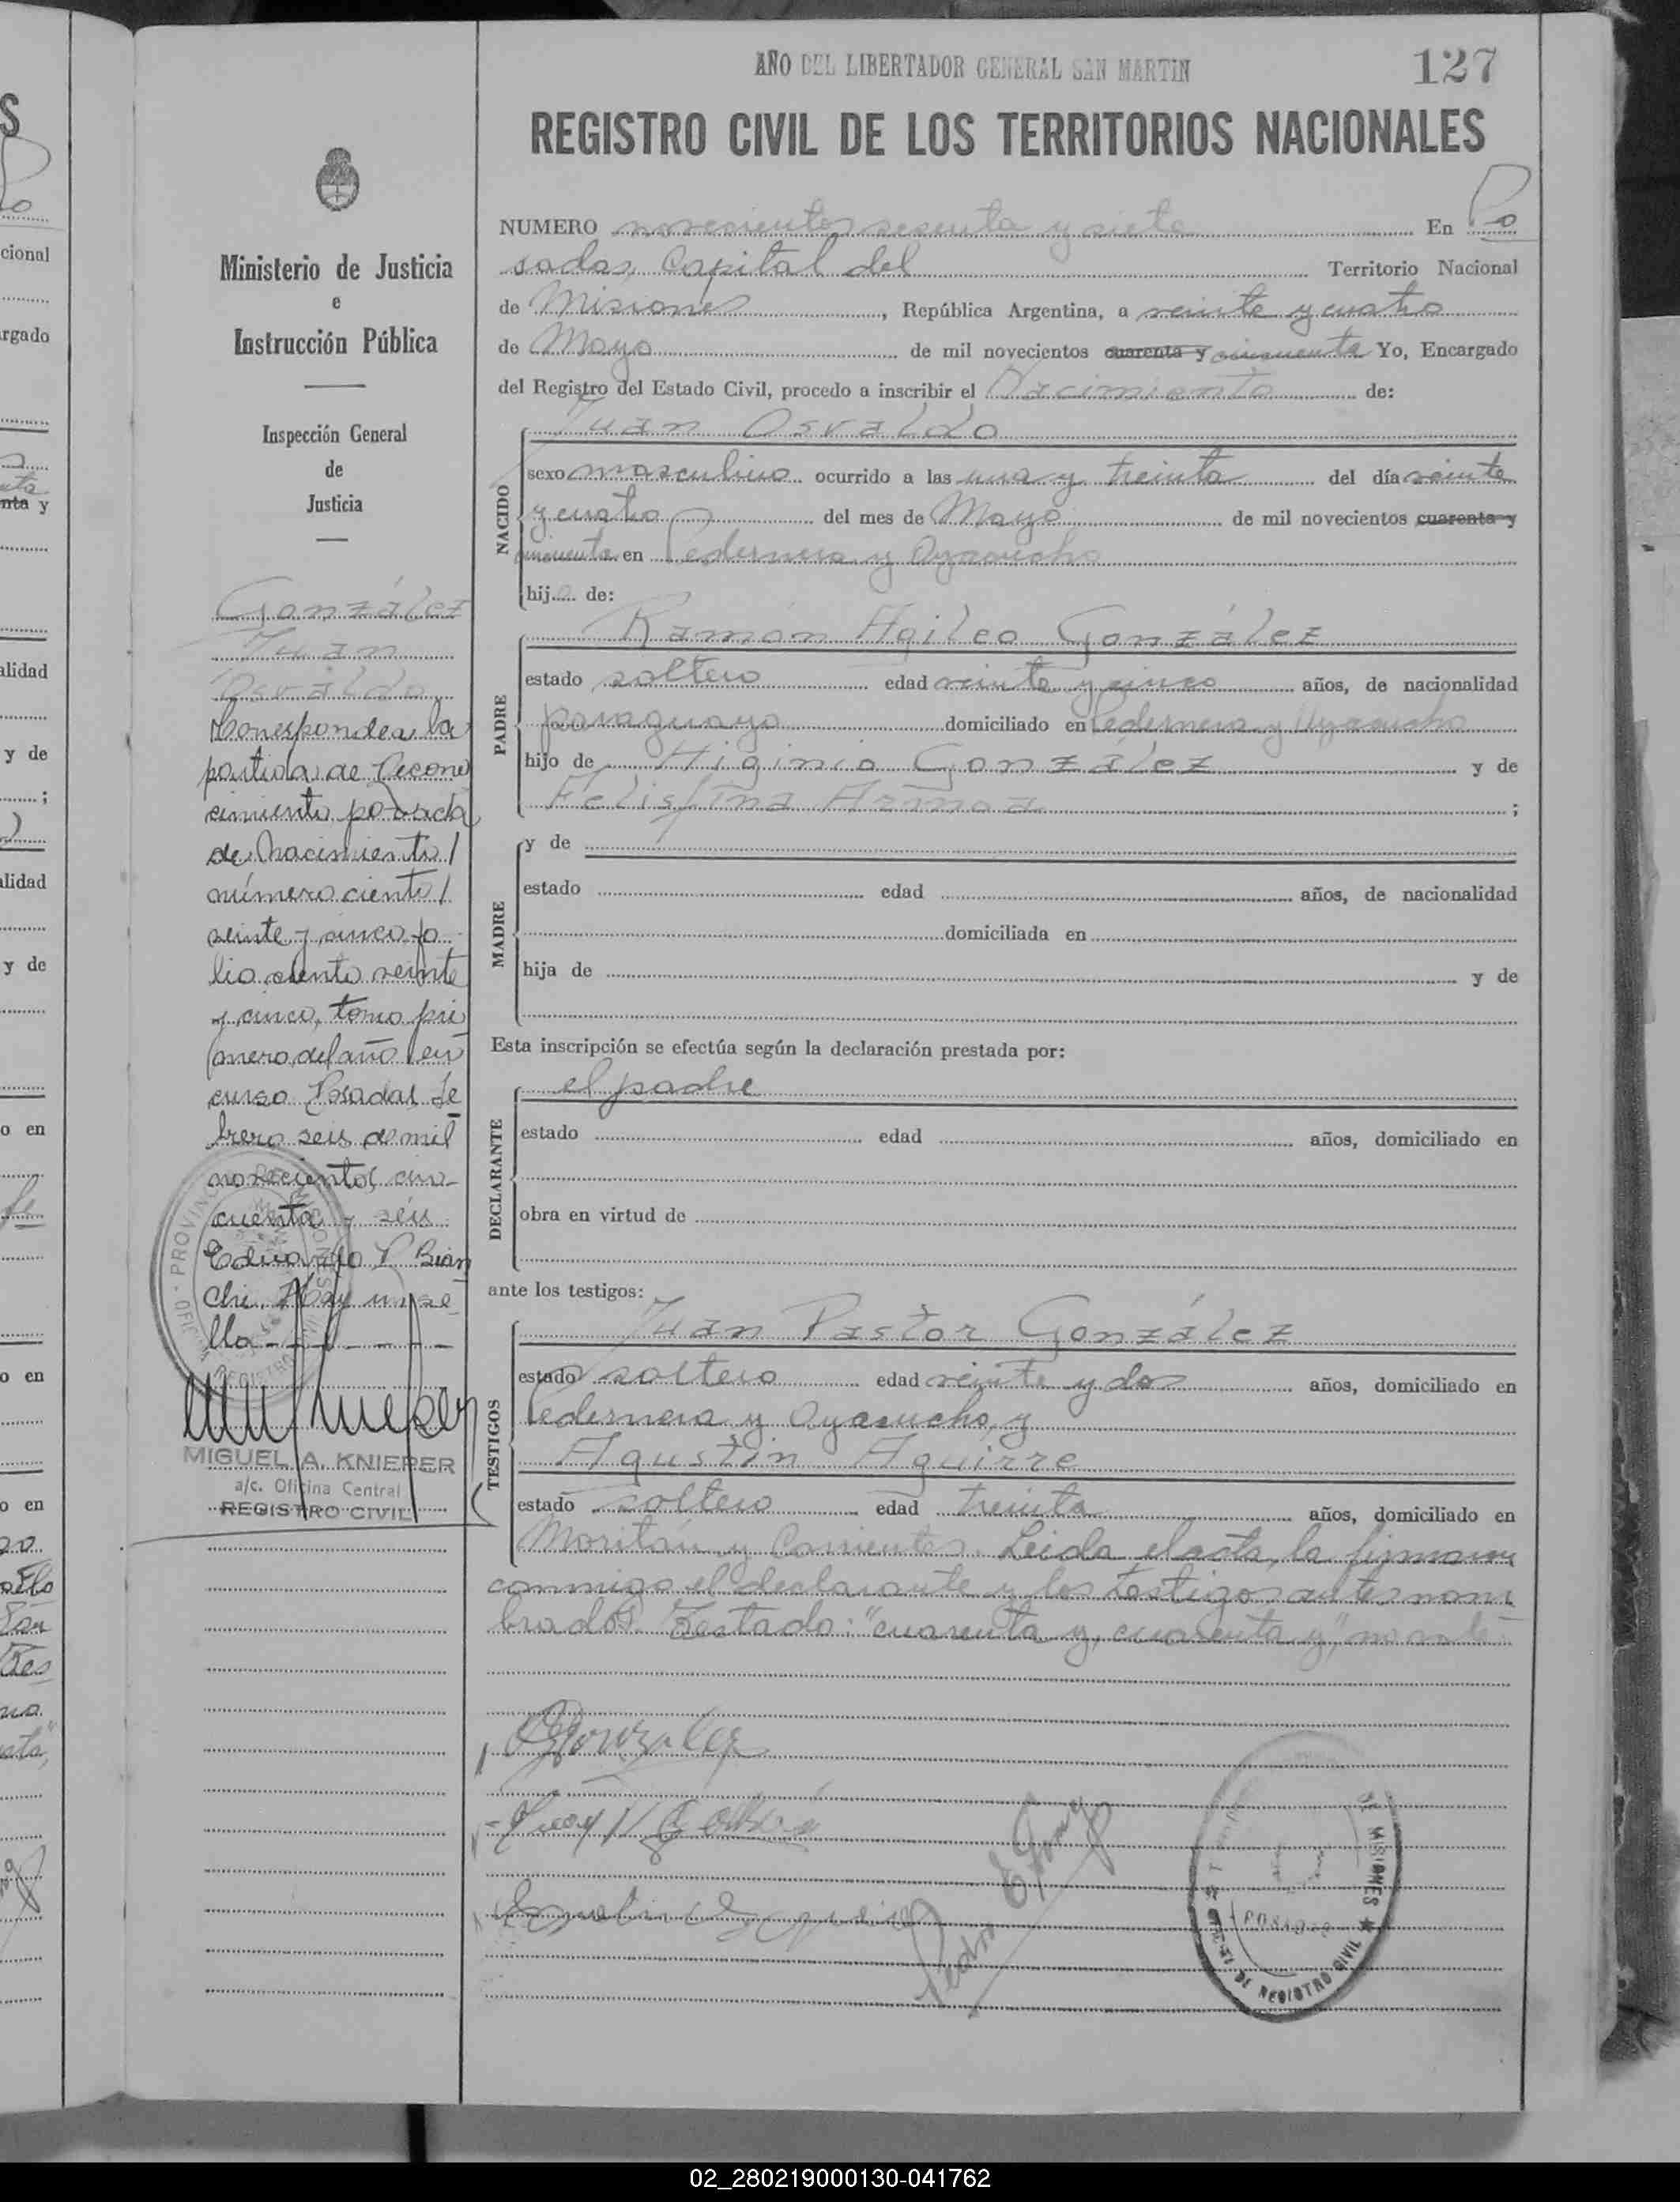 AÑO DEL LIBERTADOR GENERAL SAN MARTIN
127
REGISTRO CIVIL DE LOS TERRITORIOS NACIONALES
Ministerio de Justicia
e
Instrucción Pública
Inspección General
de
Justicia
González
Juan
Osvaldo
Corresponde a la
partida de Recono
cimiento por acta
de Nacimiento /
número ciento /
veinte y cinco fo
lio ciento veinte
y cinco, tomo pri
mero, del año en
curso Posadas Fe
brero seis de mil
novecientos cin-
cuenta y seis
Eduardo P Bian
chi. Hay un se
llo
MIGUEL A. KNIEPER
a/c. Oficina Central
REGISTRO CIVIL
NUMERO novecientos sesenta y siete En Po
sadas, Capital del Territorio Nacional
de Misiones, República Argentina, a veinte y cuatro
de Mayo de mil novecientos cuarenta y cincuenta Yo, Encargado
del Registro del Estado Civil, procedo a inscribir el Nacimiento de:
NACIDO
Juan Osvaldo
sexo masculino ocurrido a las una y treinta del día veinte
y cuatro del mes de Mayo de mil novecientos cuarenta y
cincuenta en Pedernera y Ayacucho
hijo de:
PADRE
Ramón Agileo González
estado soltero edad veinte y cinco años, de nacionalidad
paraguaya domiciliado en Pedernera y Ayacucho
hijo de Higinio González y de
Felisfina Armoa ;
MADRE
y de
estado edad años, de nacionalidad
domiciliada en
hija de y de
Esta inscripción se efectúa según la declaración prestada por:
DECLARANTE
el padre
estado edad años, domiciliado en
obra en virtud de
ante los testigos:
TESTIGOS
Juan Pastor González
estado soltero edad veinte y dos años, domiciliado en
Pedernera y Ayacucho, y
Agustín Aguirre
estado soltero edad treinta años, domiciliado en
Moritán y Corrientes. Leida el acta, la firmaron
conmigo el declarante y los testigos antes nom
brados. Testado: "cuarenta y, cuarenta y," no vale
RGonzalez
DE MISIONES ★
DE REGISTRO CIVIL
POSADAS
02_280219000130-041762